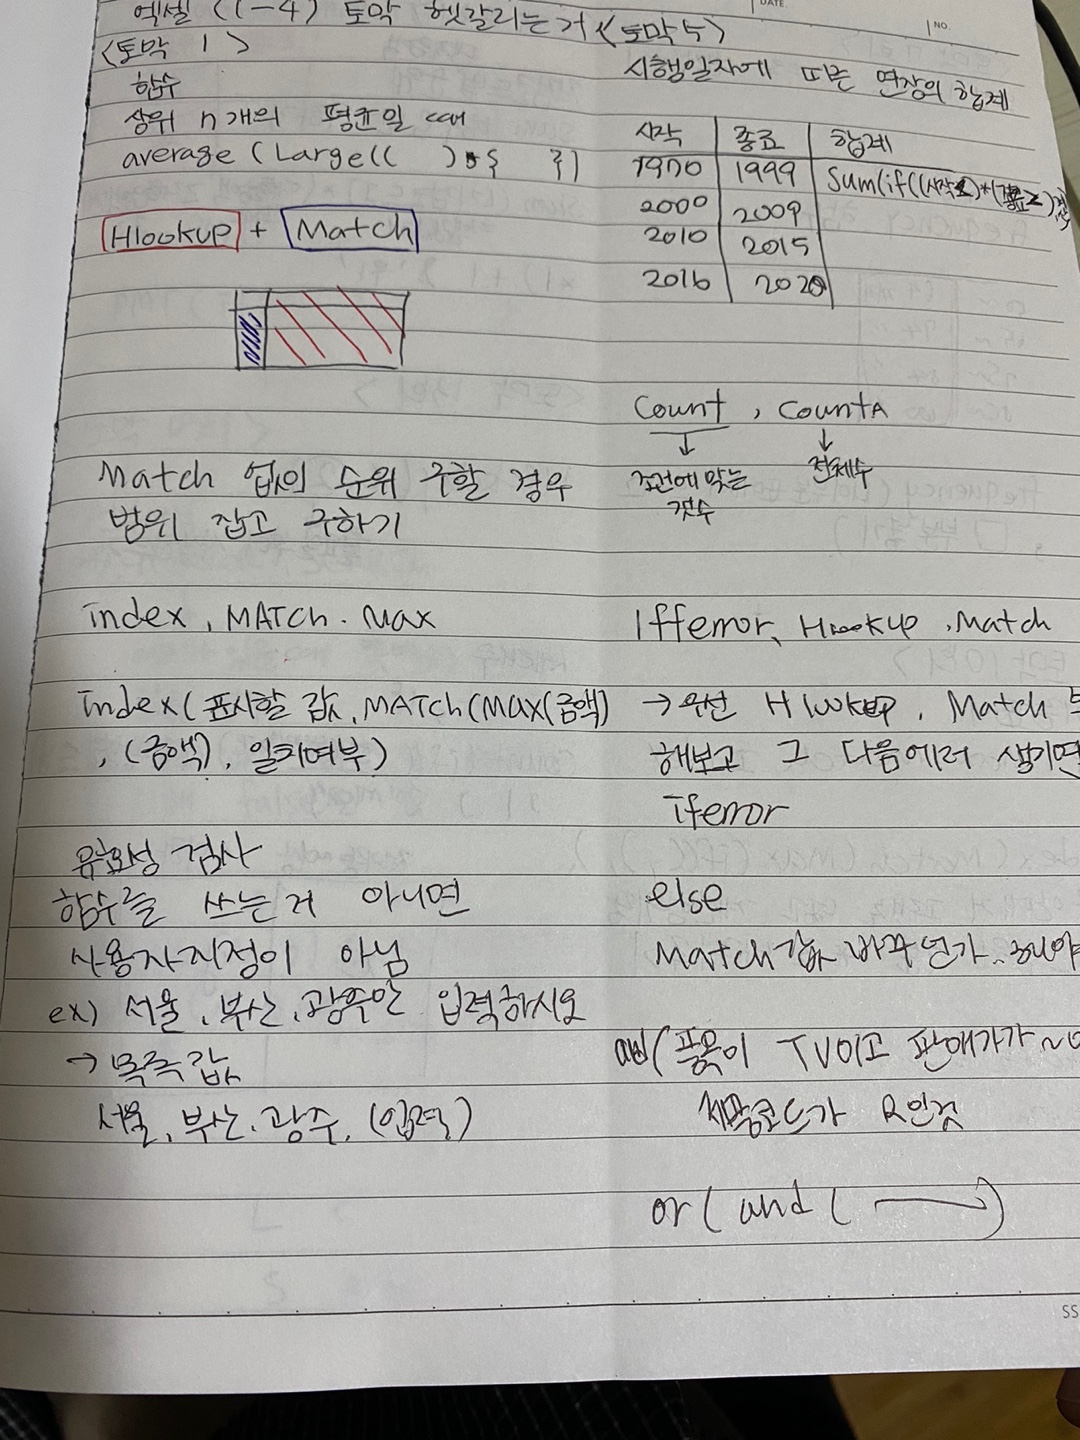 엑셀 (1-4) 토막 헷갈리는거
<토막 1>
함수
상위 n개의 평균일 때
average (Large(( ) * { })
Hlookup + Match
Match 없이 순위 구할 경우
범위 잡고 구하기
index, MATCH. Max
index(표시할 값, MATCH(MAX(금액)
, (금액), 일치여부)
유효성 검사
함수를 쓰는거 아니면
사용자지정이 아님
ex) 서울, 부산, 광주만 입력하시오
→ 목록값
서울, 부산, 광주, (입력)
DATE.
NO.
<토막 5>
시행일자에 따른 연장의 합계
시작 종료 합계
1970 1999 Sum(if((시작
2000 2009
2010 2015
2016 2020
Count, CountA
↓ ↓
조건에 맞는 전체수
것수
Iferror, Hlookup, Match
→ 우선 Hlookup, Match
해보고 그 다음에러 생기면
iferror
else
Match 값
품목이 TV이고 판매가가
코드가 R인것
or ( and ( )
SS